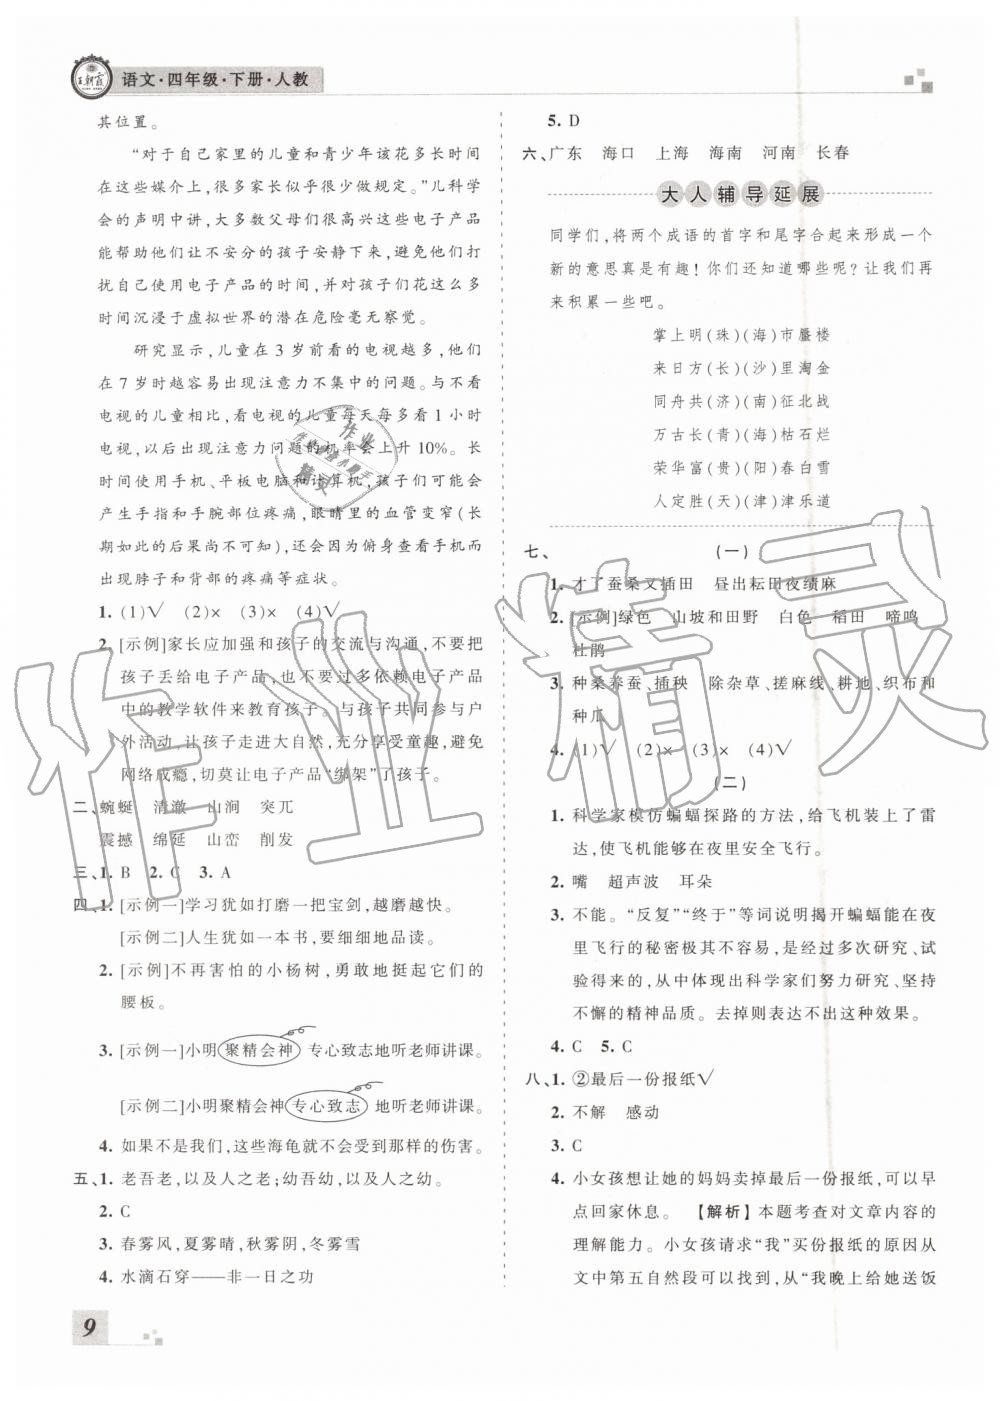 王朝霞
语文·四年级·下册·人教
其位置。
“对于自己家里的儿童和青少年该花多长时间
在这些媒介上,很多家长似乎很为难。”儿科学
会的声明中讲,大多数父母们很高兴这些电子产品
能帮助他们让不安分的孩子安静下来,避免他们干
扰自己使用电子产品的时间,并对孩子们花这么多
时间沉浸于虚拟世界的潜在危险毫无察觉。
研究显示,儿童在 3 岁前看的电视越多,他们
在 7 岁时越容易出现注意力不集中的问题。与不看
电视的儿童相比,看电视的儿童每天每多看 1 小时
电视,以后出现注意力问题的机率会上升 10%。长
时间使用手机、平板电脑和计算机,孩子们可能会
产生手指和手腕部位疼痛,眼睛里的血管变窄(长
期如此的后果尚不可知),还会因为俯身查看手机而
出现脖子和背部的疼痛等症状。
1. (1)√ (2)× (3)× (4)√
2. [示例]家长应加强和孩子的交流与沟通,不要把
孩子丢给电子产品,也不要过多依赖电子产品
中的教学软件来教育孩子。与孩子共同参与户
外活动,让孩子走进大自然,充分享受童趣,避免
网络成瘾,切莫让电子产品“绑架”了孩子。
二、蜿蜒 清澈 山涧 突兀
震撼 绵延 山峦 削发
三、1. B 2. C 3. A
四、1. [示例一]学习犹如打磨一把宝剑,越磨越快。
[示例二]人生犹如一本书,要细细地品读。
2. [示例]不再害怕的小杨树,勇敢地挺起它们的
腰板。
3. [示例一]小明聚精会神 专心致志地听老师讲课。
[示例二]小明聚精会神 专心致志 地听老师讲课。
4. 如果不是我们,这些海龟就不会受到那样的伤害。
五、1. 老吾老,以及人之老;幼吾幼,以及人之幼。
2. C
3. 春雾风,夏雾晴,秋雾阴,冬雾雪
4. 水滴石穿——非一日之功
9
5. D
六、广东 海口 上海 海南 河南 长春
大人辅导延展
同学们,将两个成语的首字和尾字合起来形成一个
新的意思真是有趣！你们还知道哪些呢？让我们再
来积累一些吧。
掌上明(珠)(海)市蜃楼
来日方(长)(沙)里淘金
同舟共(济)(南)征北战
万古长(青)(海)枯石烂
荣华富(贵)(阳)春白雪
人定胜(天)(津)津乐道
七、 (一)
1. 才了蚕桑又插田 昼出耘田夜绩麻
2. [示例]绿色 山坡和田野 白色 稻田 啼鸣
杜鹃
3. 种桑养蚕、插秧 除杂草、搓麻线、耕地、织布和
种瓜
4. (1)√ (2)× (3)× (4)√
(二)
1. 科学家模仿蝙蝠探路的方法,给飞机装上了雷
达,使飞机能够在夜里安全飞行。
2. 嘴 超声波 耳朵
3. 不能。“反复”“终于”等词说明揭开蝙蝠能在夜
里飞行的秘密极其不容易,是经过多次研究、试
验得来的,从中体现出科学家们努力研究、坚持
不懈的精神品质。去掉则表达不出这种效果。
4. C 5. C
八、1. ②最后一份报纸√
2. 不解 感动
3. C
4. 小女孩想让她的妈妈卖掉最后一份报纸,可以早
点回家休息。 【解析】本题考查对文章内容的
理解能力。小女孩请求“我”买份报纸的原因从
文中第五自然段可以找到,从“我晚上给她送饭
作业精灵